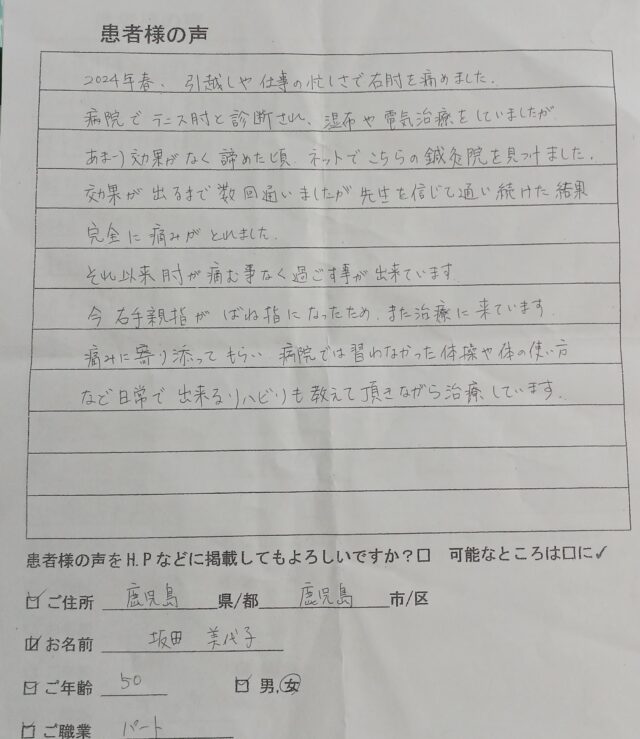 患者様の声
2024年春、引越しや仕事の忙しさで右肘を痛めました.
病院でテニス肘と診断され、湿布や電気治療をしていましたが
あまり効果がなく諦めた頃、ネットでこちらの鍼灸院を見つけました.
効果が出るまで数回通いましたが先生を信じて通い続けた結果
完全に痛みがとれました.
それ以来肘が痛む事なく過ごす事が出来ています.
今右手親指がばね指になったため、また治療に来ています.
痛みに寄り添ってもらい病院では習わなかった体操や体の使い方
など日常で出来るリハビリも教えて頂きながら治療しています.
患者様の声をH.Pなどに掲載してもよろしいですか?□ 可能なところは□に✓
☑ご住所 鹿児島 県/都 鹿児島 市/区
☑お名前 坂田 美代子
☑ご年齢 50 ☑男,女
☑ご職業 パート